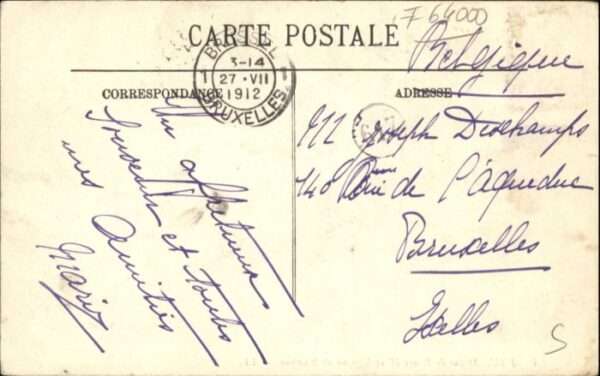 CARTE POSTALE
F 64000
Belgique
BRUSSEL
3-14
1 27 · VII
1912
BRUXELLES
CORRESPONDANCE
ADRESSE
Un affectueux
souvenir et toutes
mes amitiés
Marie
Joseph Deschamps
148 Rue de l'Aqueduc
Bruxelles
Ixelles
S